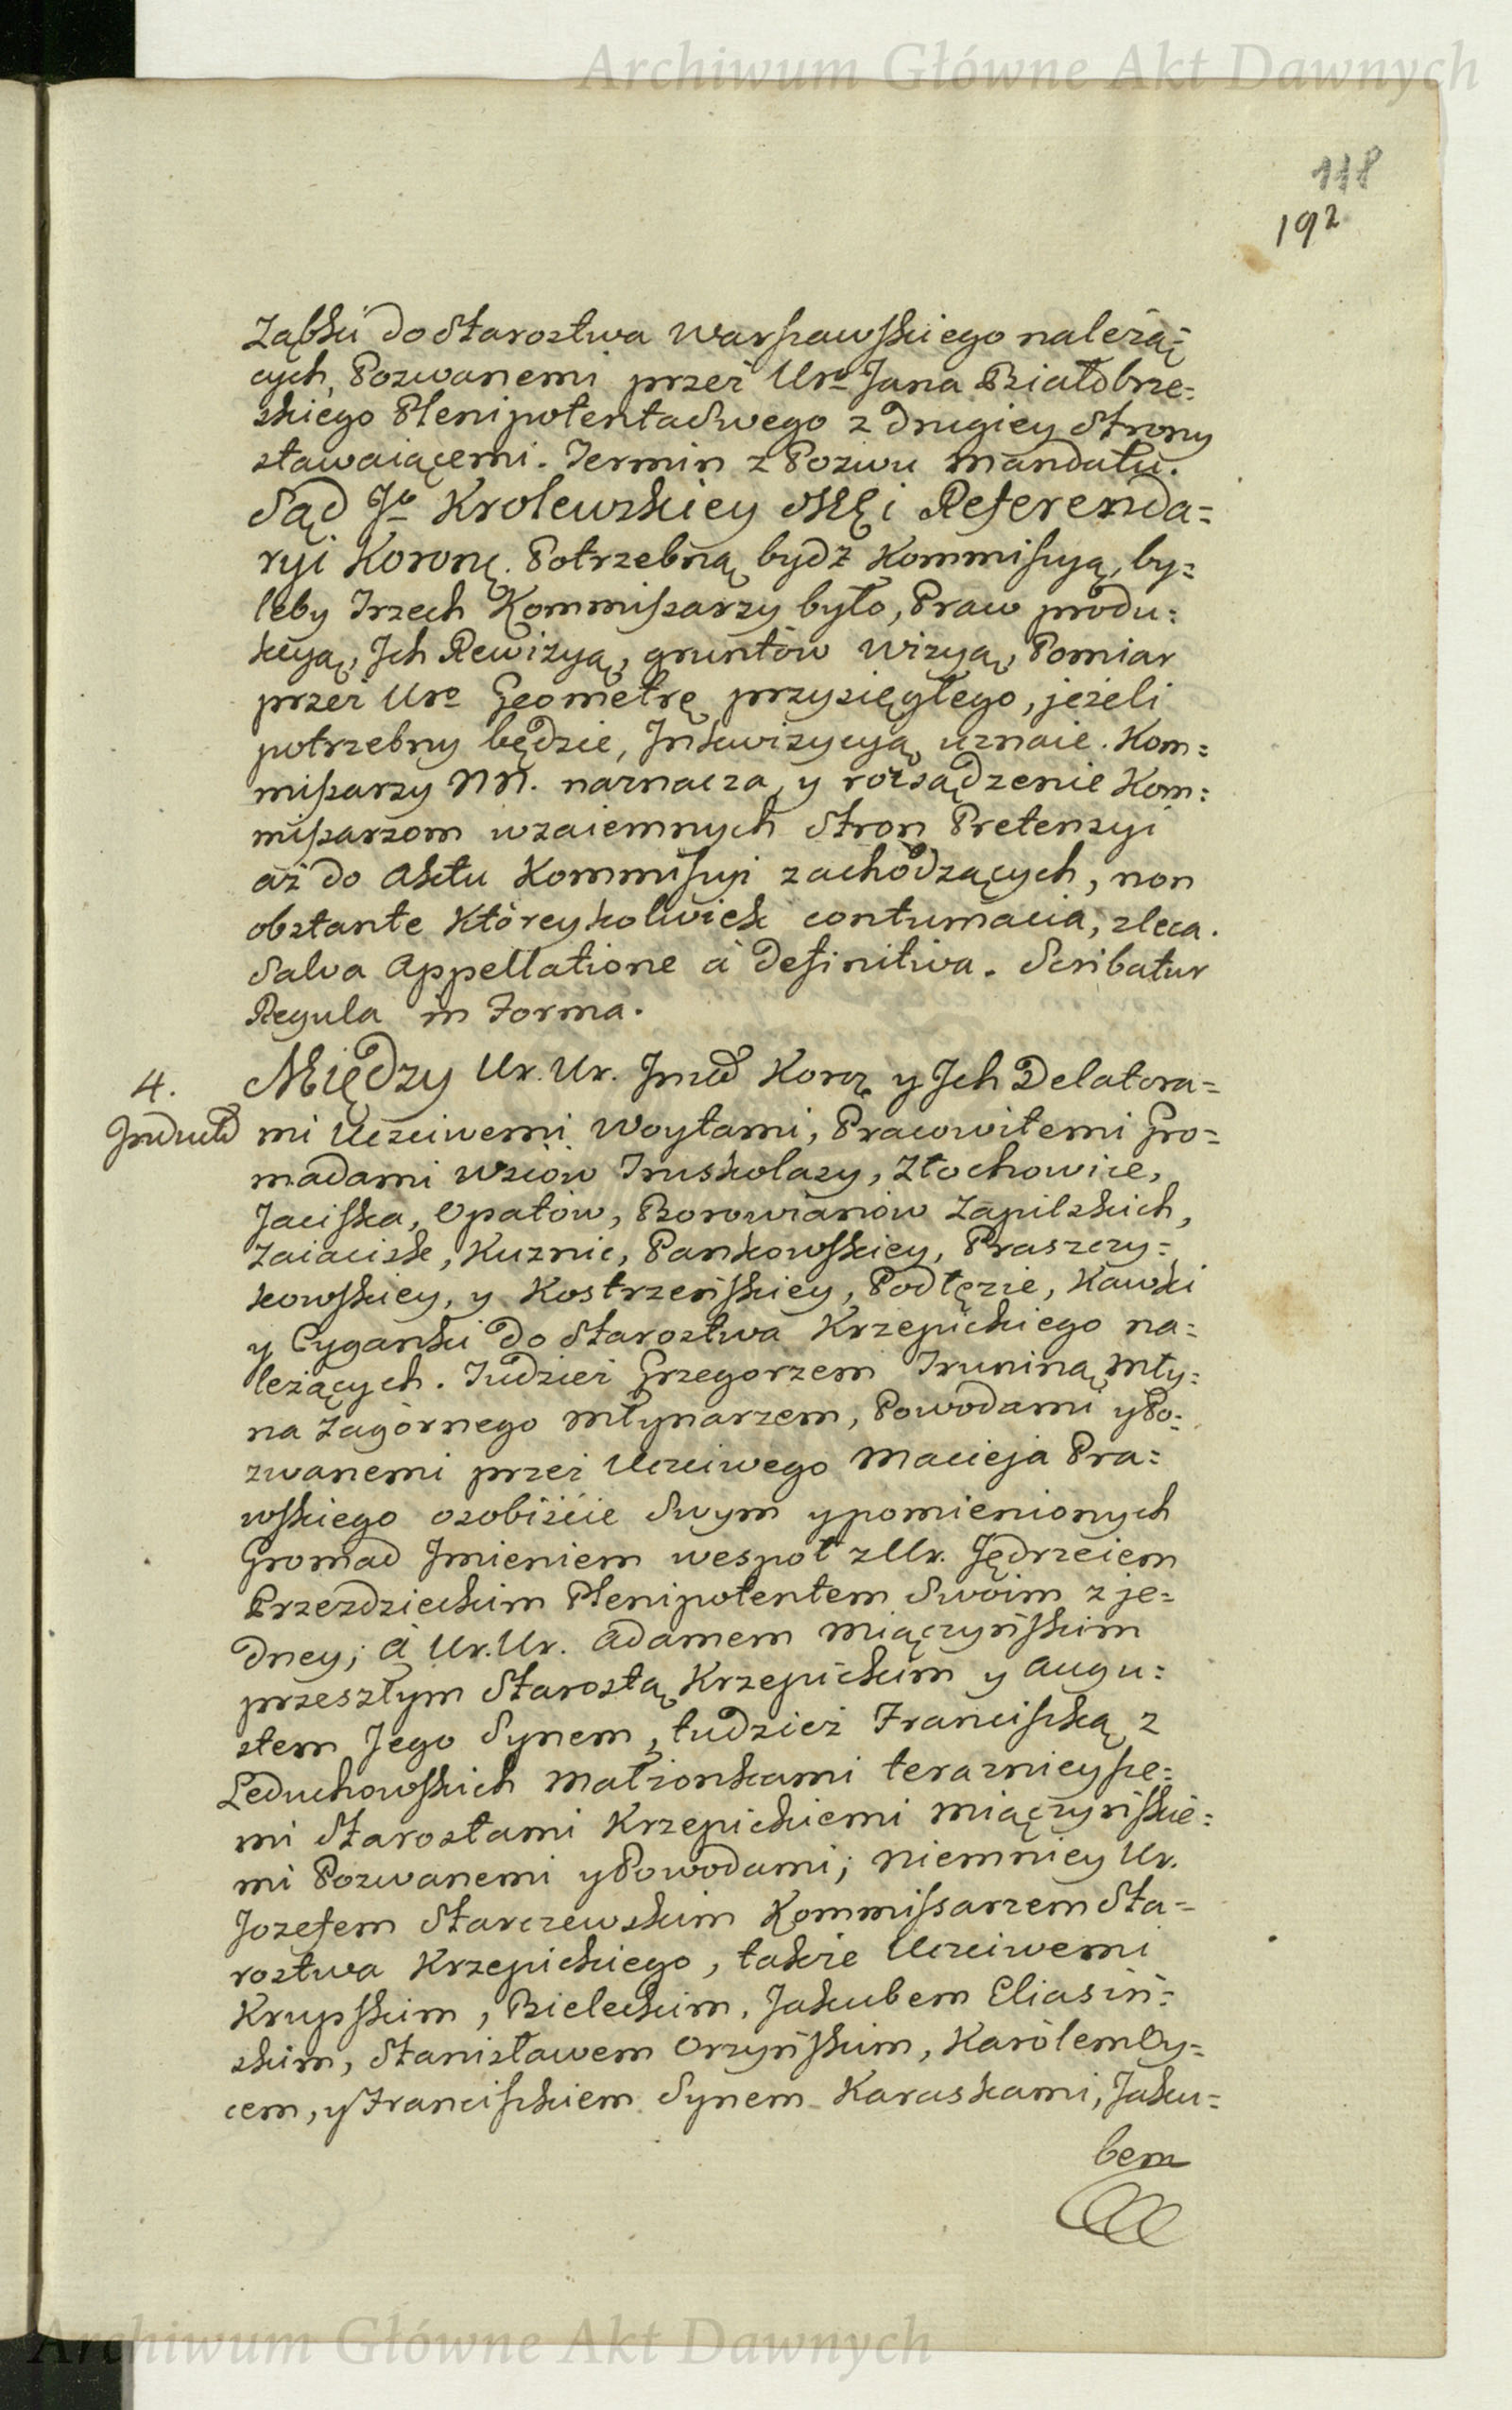 Archiwum Główne Akt Dawnych
118
192
Ząbki do Starostwa Warszawskiego należą=
cych, Pozwanemi przez Uro Jana Białobrze=
skiego Plenipotenta Swego z drugiey Strony
stawaiącemi. Termin z Pozwu Mandatu.
Sąd Jo Krolewskiey Mći Referenda=
ryi Koronę. Potrzebną bydź Kommissyą, by=
leby Trzech Kommissarzy było, Praw produ=
kcyą, Ich Rewizyą, gruntów wizyą, Pomiar
przez Uro Geometrę przysięgłego, jeżeli
potrzebny będzie, Inkwizycyą uznaie. Kom=
missarzy NN. naznacza, y rozsądzenie Kom=
missarzom wzaiemnych Stron Pretensyi
aż do Aktu Kommissyi zachodzących, non
obstante Któreykolwiek contumacia, zleca.
Salva Appellatione à definitiva. Scribatur
Regula in Forma.
4. Między Ur. Ur. Korę y Ich Delatora=
mi Uczciwemi Woytami, Pracowitemi Gro=
madami Wsiów Truskolasy, Złochowice,
Jaciska, Opatów, Borowianów Zapilskich,
Zaiacisk, Kuznic, Pankowskiey, Praszczy=
kowskiey, y Kostrzeńskiey, Podłęzie, Kawki
y Cyganki do Starostwa Krzepickiego na=
leżących. Tudzież Grzegorzem Truniną Mły=
na Zagórnego Młynarzem, Powodami y Po=
zwanemi przez Uczciwego Macieja Pra=
wskiego osobiście Swym y pomienionych
Gromad Imieniem wespoł z Ur. Jędrzeiem
Przezdzieckim Plenipotentem Swoim z je=
dney; à Ur. Ur. Adamem Miączyńskim
przeszłym Starostą Krzepickim y Augu=
stem Jego Synem, tudzież Franciszką z
Leduchowskich Małżonkami teraznieysze=
mi Starostami Krzepickiemi Miączyńskie=
mi Pozwanemi y Powodami; niemniey Ur.
Jozefem Starczewskim Kommissarzem Sta=
rostwa Krzepickiego, także Uczciwemi
Krupskim, Bieleckim, Jakubem Eliasiń=
skim, Stanisławem Orzyńskim, Karólem Oy=
cem, y Franciszkiem Synem Karaskami, Jaku=
bem
Archiwum Główne Akt Dawnych